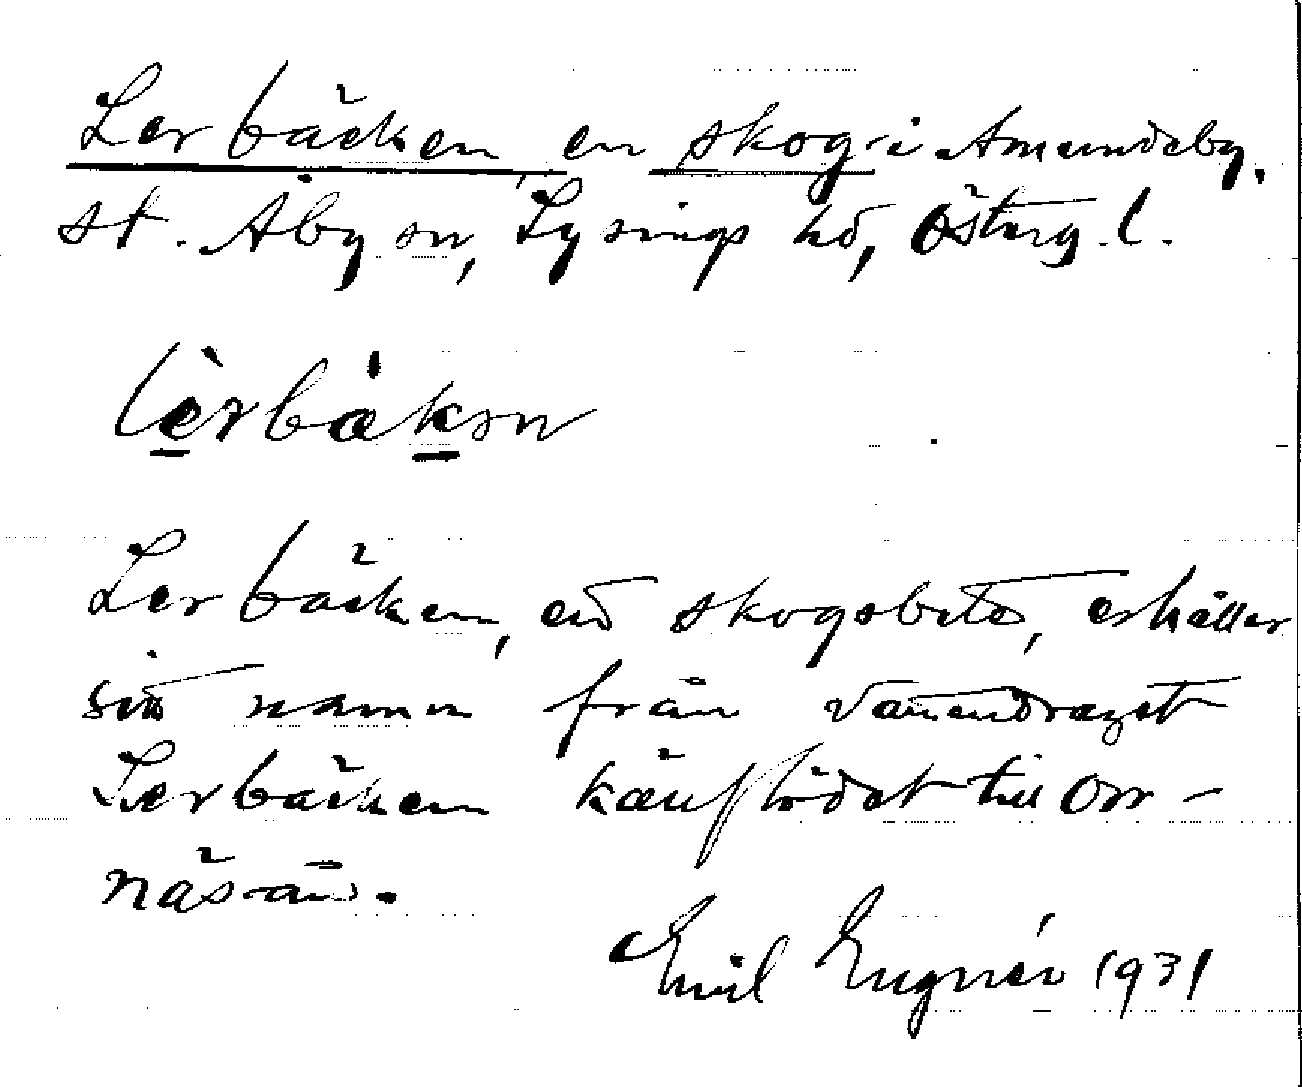 Lerbäcken, en skog i Amundeby,
st. Åby sn, Lysings hd, Österg. l.
lèrbäkən
Lerbäcken, ett skogsbete, erhåller
sitt namn från vattendraget
Lerbäcken källflödet till Orr-
näsån.
Emil Engnér 1931